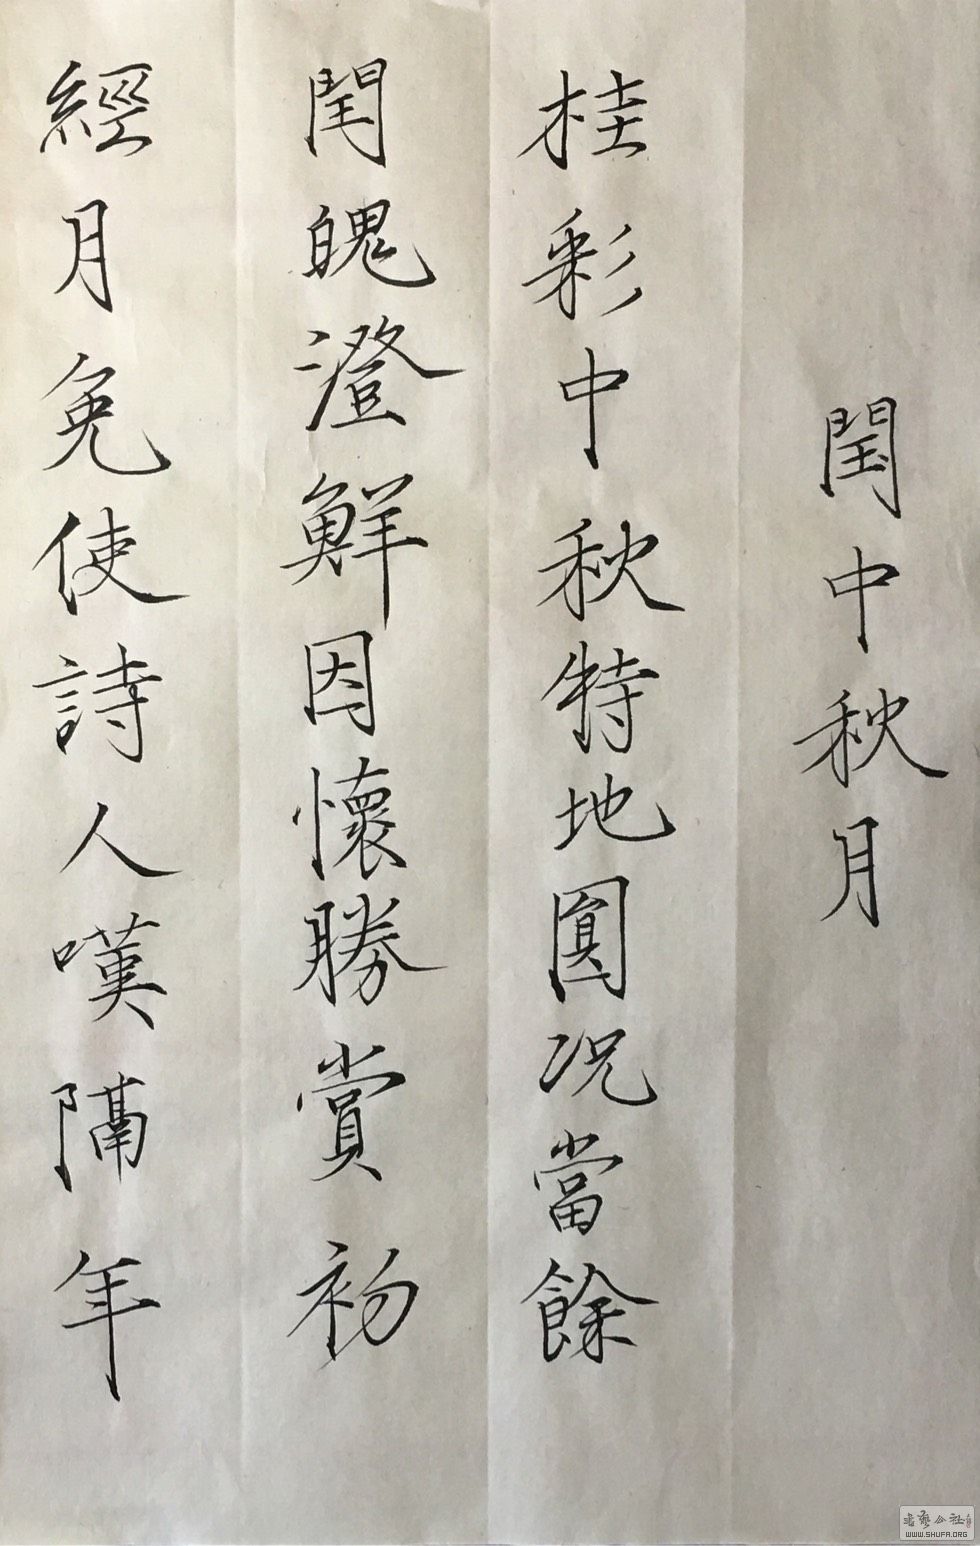 閏中秋月
桂彩中秋特地圓况當餘
閏魄澄鮮因懷勝賞初
經月免使詩人嘆隔年
WWW.SHUFA.ORG